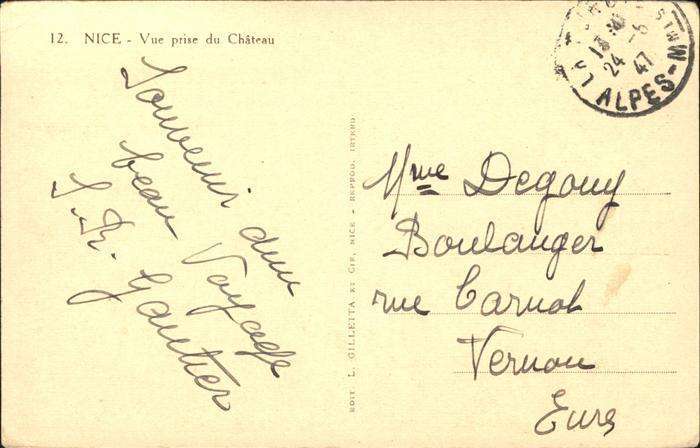 12. NICE - Vue prise du Château
Souvenir d'un
beau Voyage
S. R. Gautier
EDIT L. GILLETTA ET CIE, NICE - REPROD. INTERD.
24 -6
47
ALPES-M
Mme Degouy
Boulanger
rue Carnot
Vernon
Eure